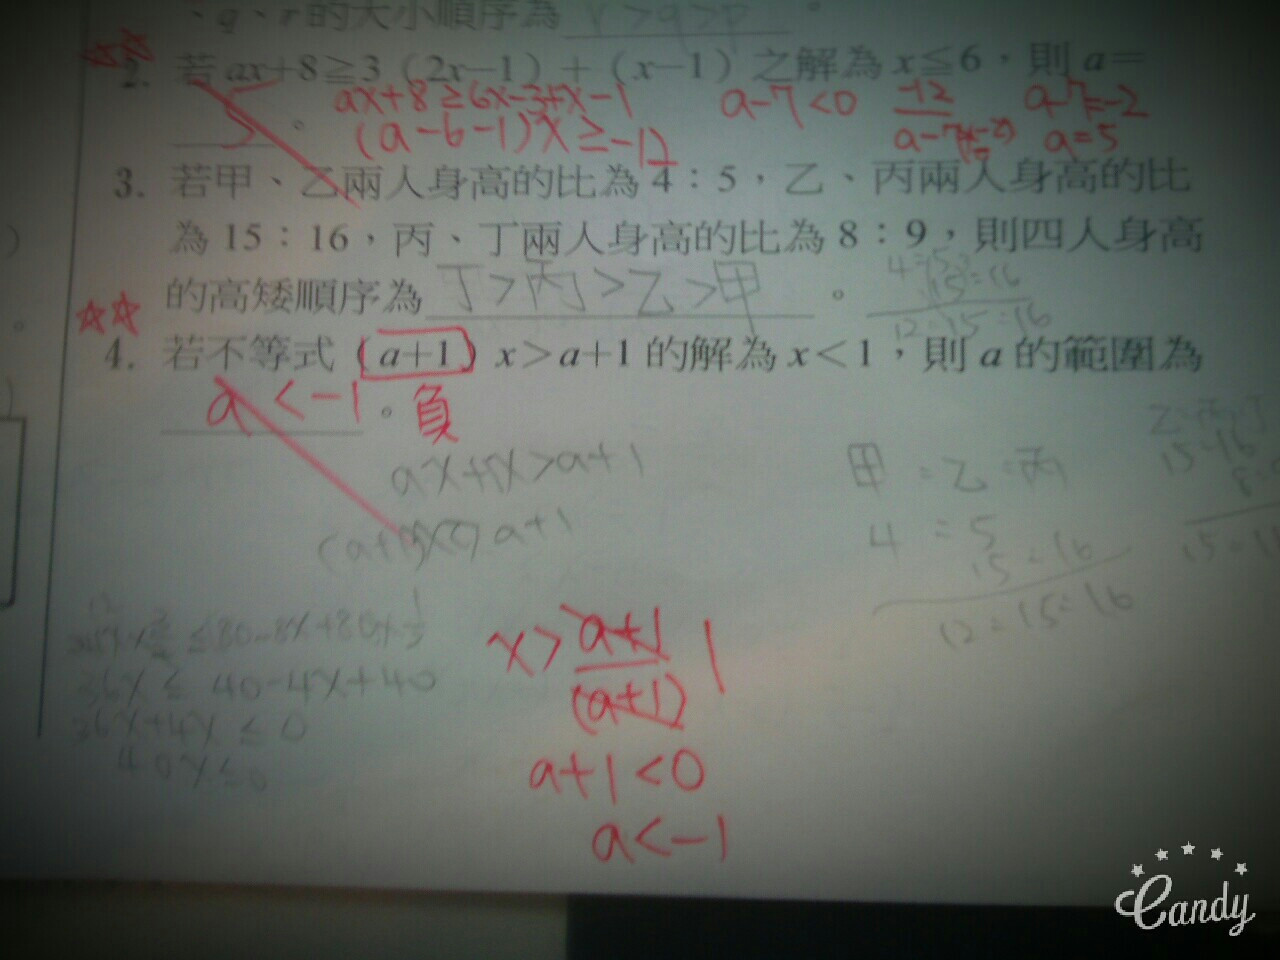 、q、r的大小順序為 r>q>p 。
☆☆
2. 若ax+8≧3（2x−1）+（x−1）之解為x≦6，則a=
5 。
ax+8≥6x-3+x-1
(a-6-1)x≥-12
a-7<0
-12
a-7
a-7=-2
a=5
3. 若甲、乙兩人身高的比為4：5，乙、丙兩人身高的比
為15：16，丙、丁兩人身高的比為8：9，則四人身高
的高矮順序為 丁>丙>乙>甲 。
4:5
15:16
12:15:16
☆☆
4. 若不等式（a+1）x>a+1的解為x<1，則a的範圍為
a<-1 。負
ax+x>a+1
a+1
甲:乙:丙
4:5
15:16
12:15:16
乙:丙:丁
15:16
≤80-8x+80x
36x≤40-4x+40
36x+4x≤0
40x≤0
x> a+1
(a+1)
1
a+1<0
a<-1
Candy